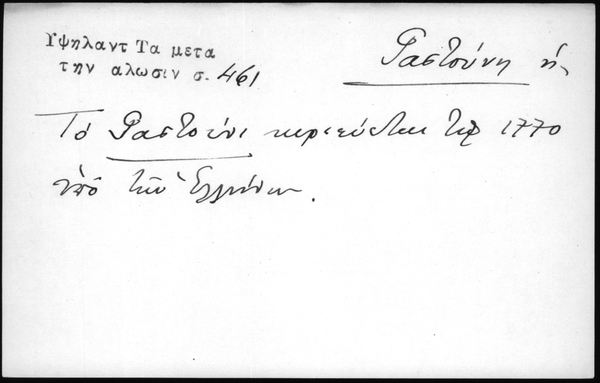 Υψηλαντ Τα μετα
την αλωσιν σ. 461
Γαστούνη ἡ,
Τό Γαστούνι κυριεύεται τῷ 1770
ὑπό τῶν Ἑλλήνων.